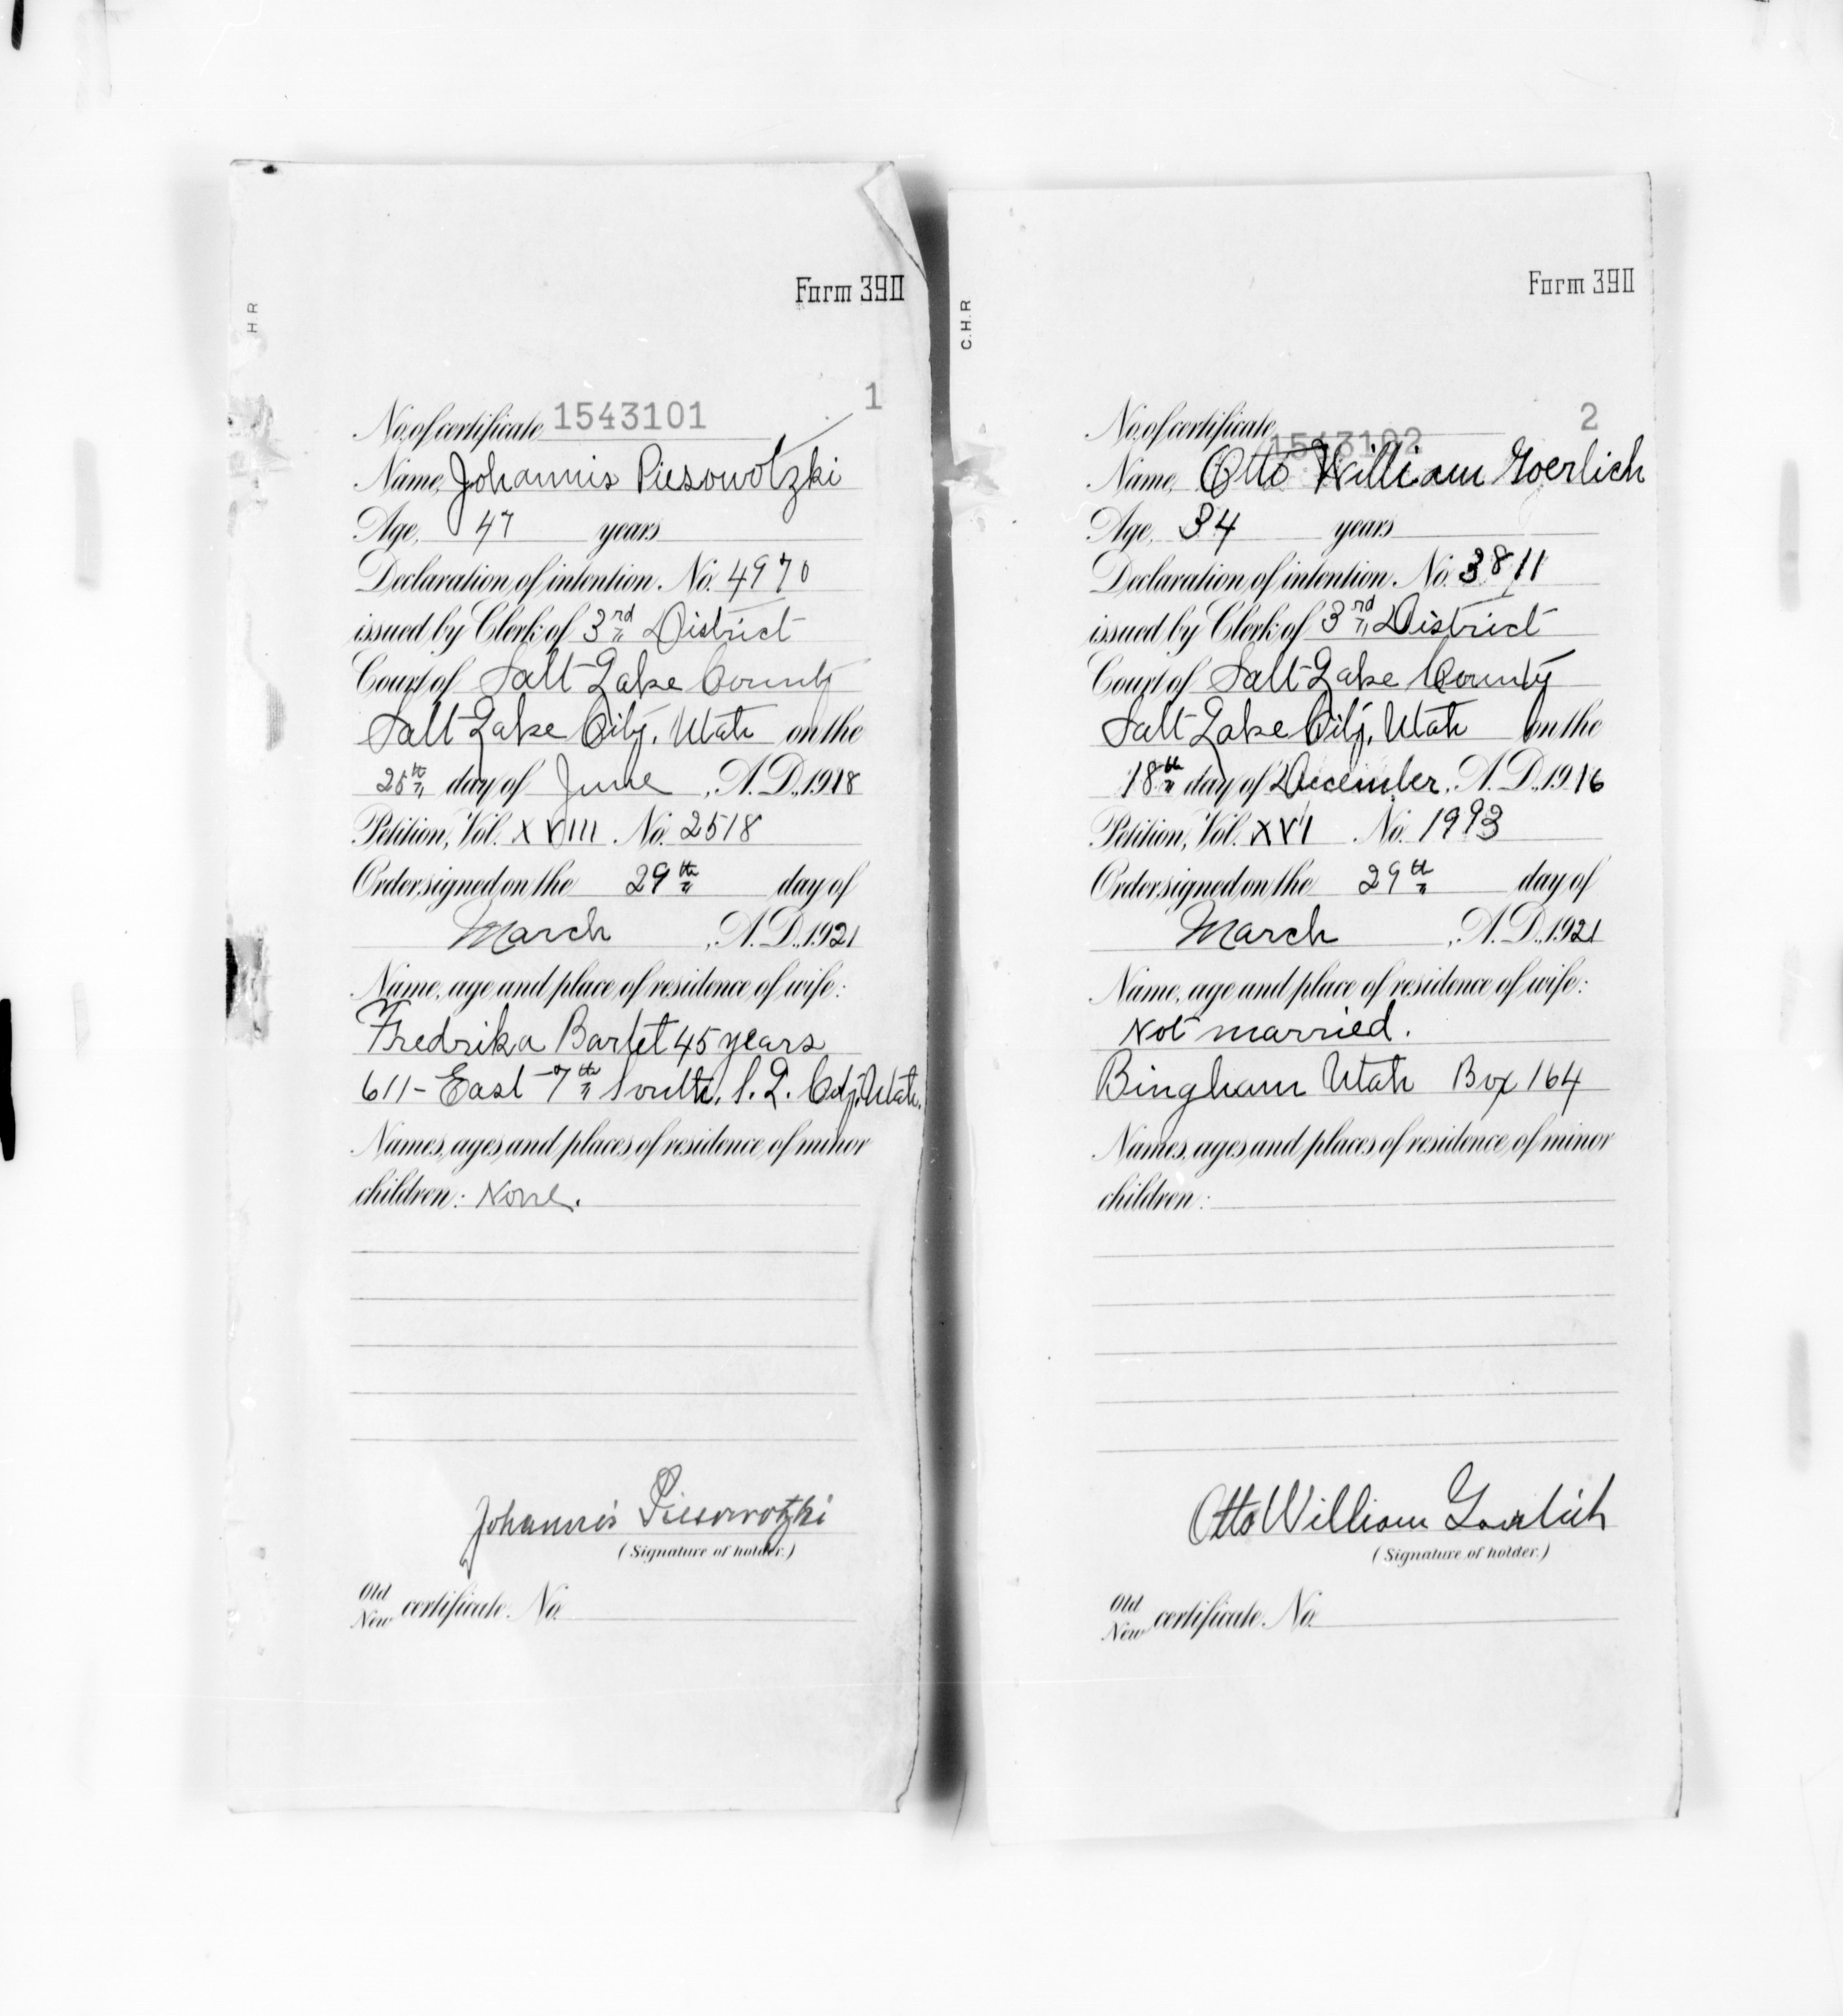 Form 390
H R
1
No. of certificate 1543101
Name, Johannis Piesowotzki
Age, 47 years
Declaration of intention No. 4970
issued by Clerk of 3rd District
Court of Salt Lake County
Salt Lake City, Utah on the
25th day of June, A.D., 1918
Petition, Vol. XVIII No. 2518
Order signed on the 29th day of
March, A.D., 1921
Name, age and place of residence of wife:
Fredrika Bartet 45 years
611- East 7th South, S. L. City, Utah.
Names, ages and places of residence of minor
children: None.
Johannis Piesowotzki
(Signature of holder.)
Old
New certificate No.
Form 390
C.H.R
2
No. of certificate 1543102
Name, Otto William Goerlich
Age, 34 years
Declaration of intention No. 3811
issued by Clerk of 3rd District
Court of Salt Lake County
Salt Lake City, Utah on the
18th day of December, A.D., 1916
Petition, Vol. XVI No. 1993
Order signed on the 29th day of
March, A.D., 1921
Name, age and place of residence of wife:
Not married.
Bingham Utah Box 164
Names, ages and places of residence of minor
children:
Otto William Goerlich
(Signature of holder.)
Old
New certificate No.